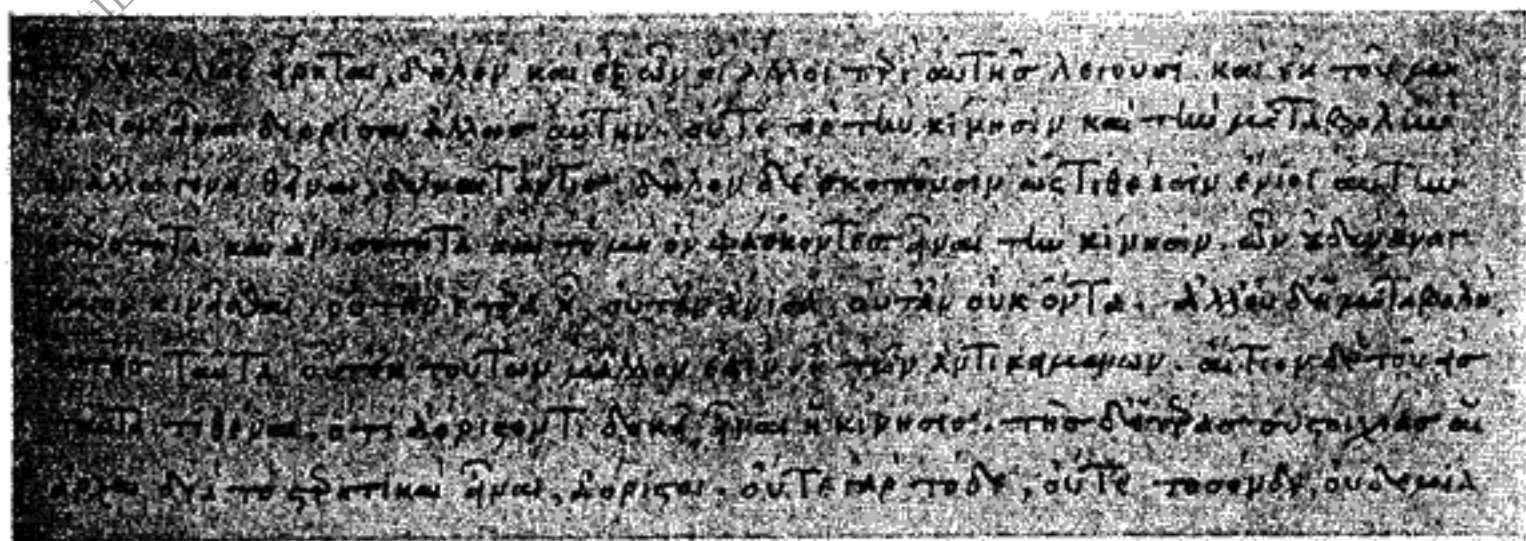 δὲ καλῶς εἴρηται, δῆλον καὶ ἐξ ὧν οἱ ἄλλοι περὶ αὐτῆς λέγουσι. καὶ ἐκ τοῦ μὴ
ῥάδιον εἶναι διορίσαι ἄλλως αὐτήν. οὔτε γὰρ τὴν κίνησιν καὶ τὴν μεταβολὴν
θεῖναι, δύναιτ' ἄν τις. δῆλον δὲ σκοποῦσιν ὡς τιθέασιν ἔνιοι αὐτὴν
καὶ ἀνισότητα καὶ τὸ μὴ ὂν φάσκοντες εἶναι τὴν κίνησιν. ὧν οὐδὲν ἀναγ
καῖον κινεῖσθαι, οὔτ' ἂν ἕτερα ᾖ, οὔτ' ἂν ἄνισα, οὔτ' ἂν οὐκ ὄντα. ἀλλ' οὐδ' ἡ μεταβολὴ,
ταῦτα οὔτ' ἐκ τούτων μᾶλλον ἐστιν ἢ τῶν ἀντικειμένων. αἴτιον δὲ τοῦ εἰς
ταῦτα τιθέναι, ὅτι ἀόριστόν τι δοκεῖ εἶναι ἡ κίνησις. τῆς δὲ ἑτέρας συστοιχίας αἱ
ἀρχαὶ διὰ τὸ στερητικαὶ εἶναι, ἀόριστοι. οὔτε γὰρ τόδε, οὔτε τοσόνδε, οὐδεμία